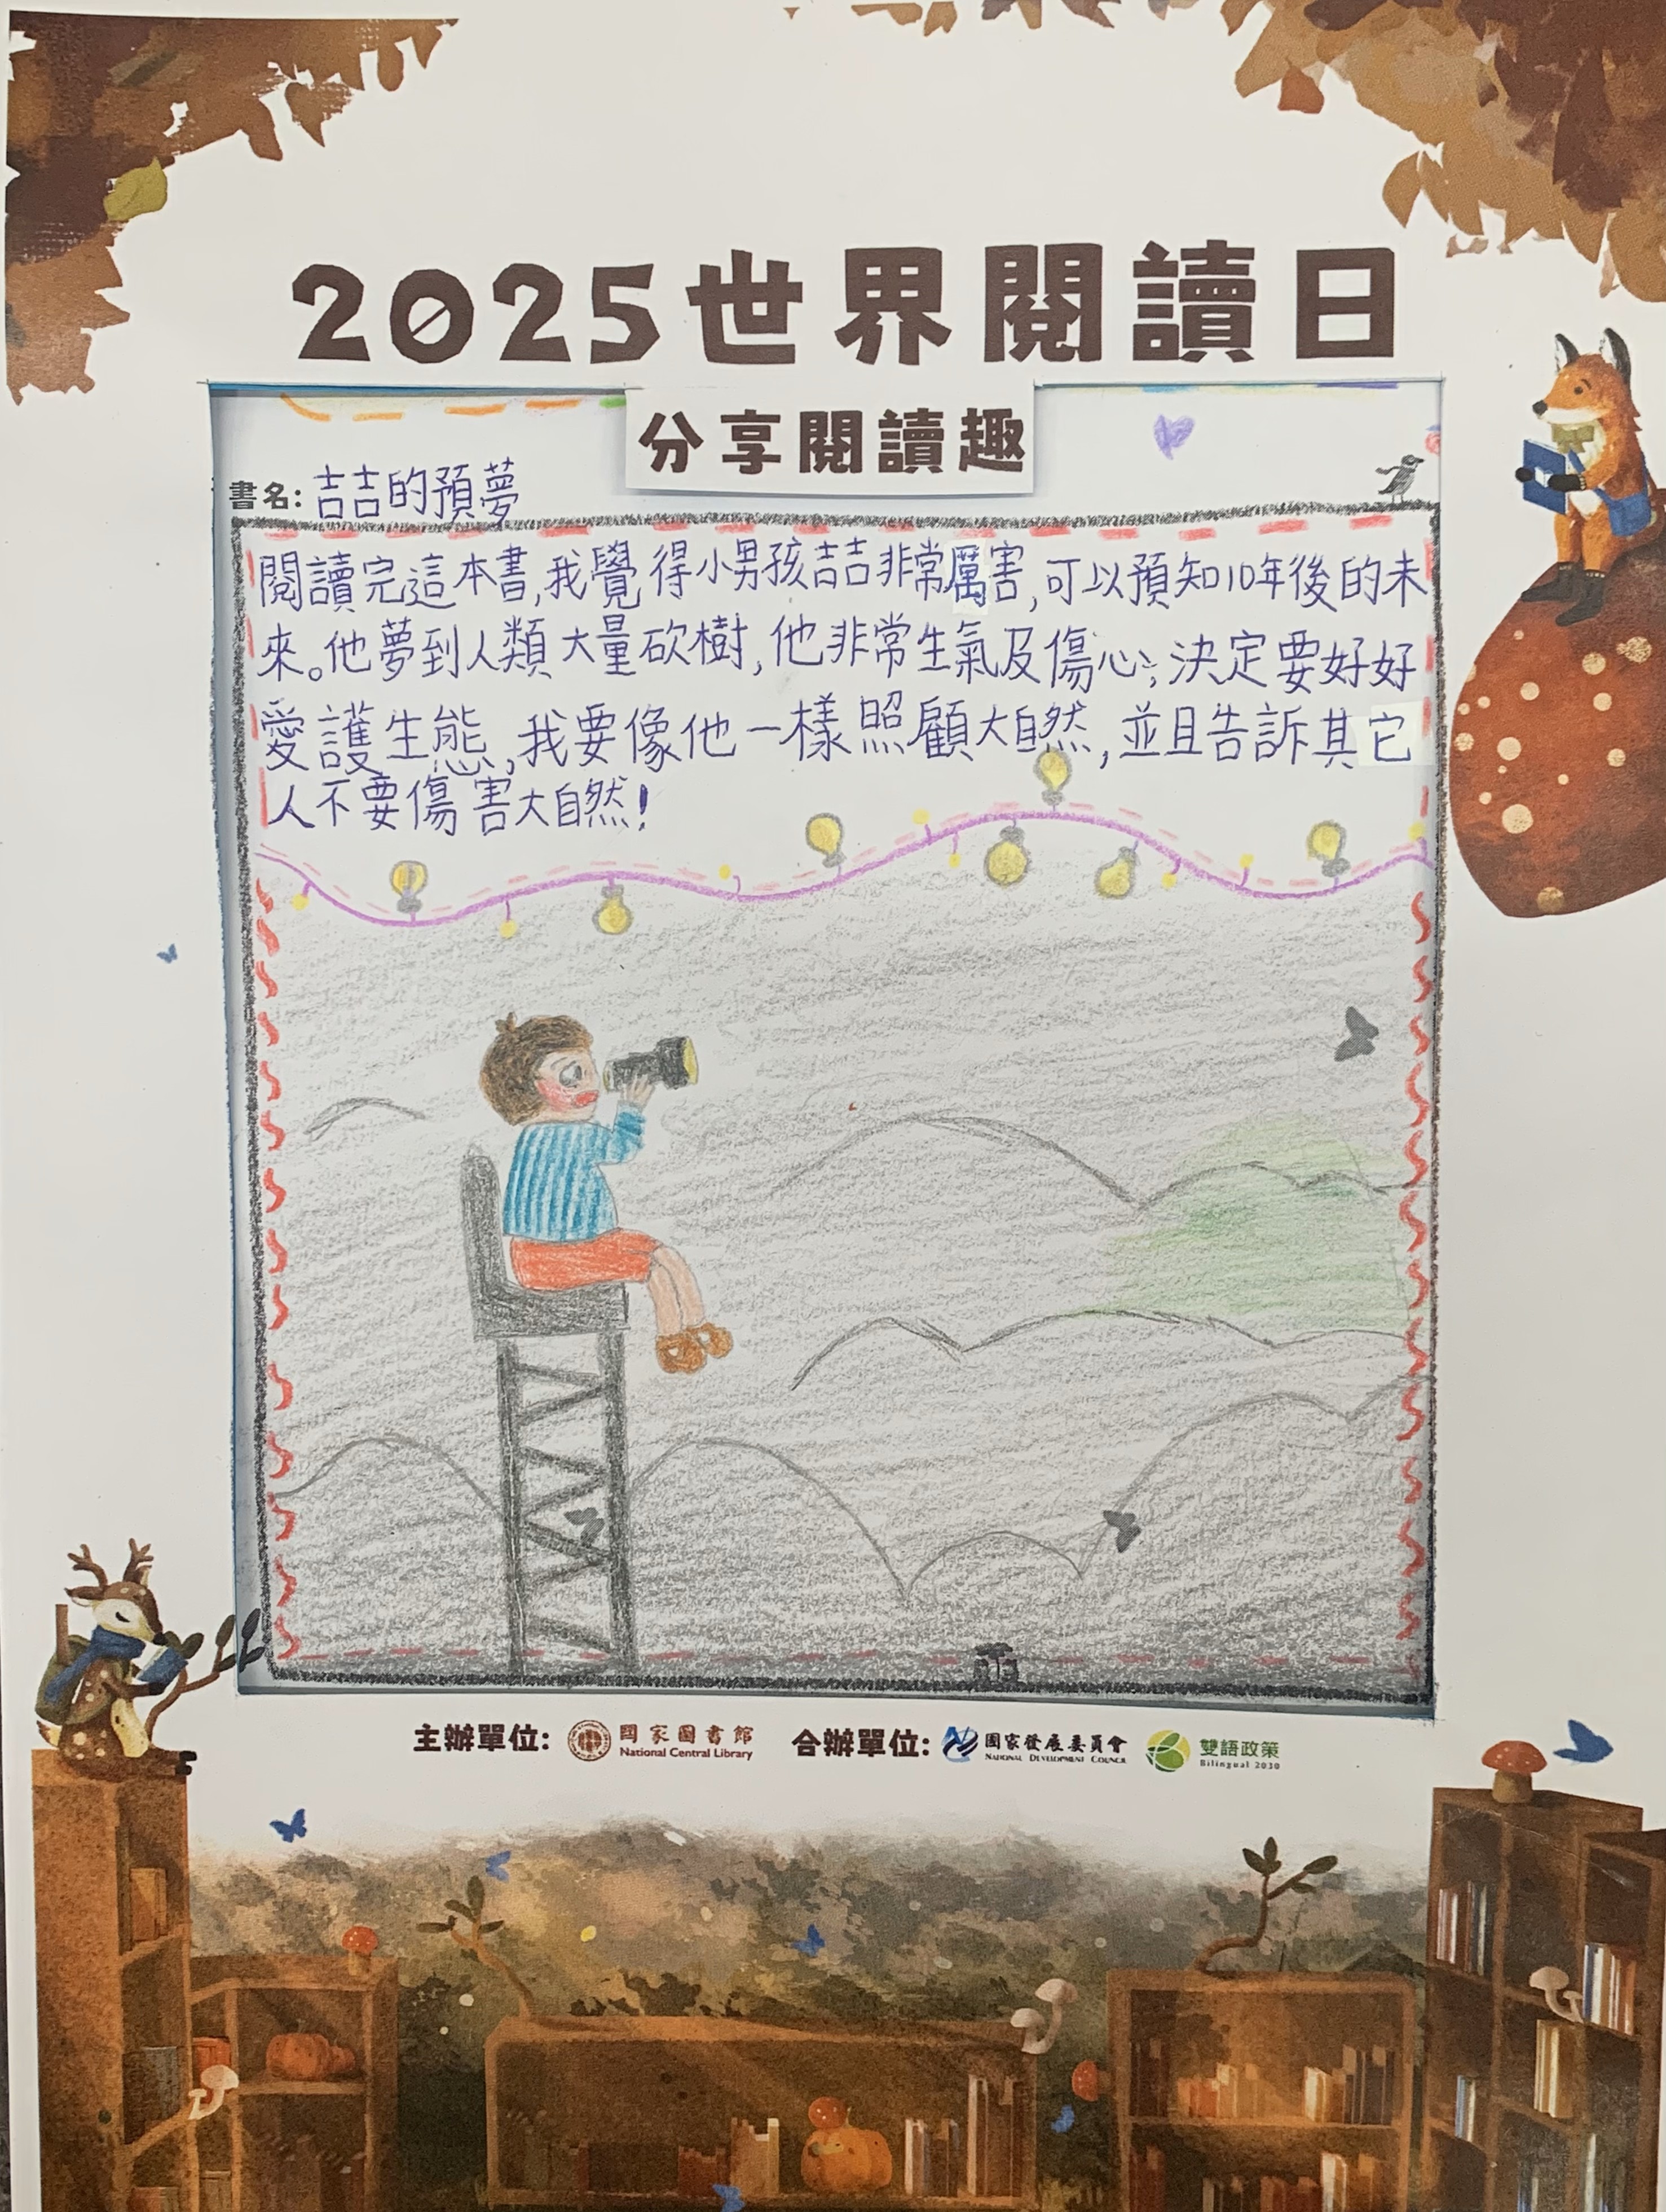 2025世界閱讀日
分享閱讀趣
書名: 喆的預夢
閱讀完這本書,我覺得小男孩喆非常厲害,可以預知10年後的未
來。他夢到人類大量砍樹,他非常生氣及傷心;決定要好好
愛護生態,我要像他一樣照顧大自然,並且告訴其它
人不要傷害大自然!
主辦單位: 國家圖書館 合辦單位: 國家發展委員會 雙語政策
National Central Library NATIONAL DEVELOPMENT COUNCIL Bilingual 2030